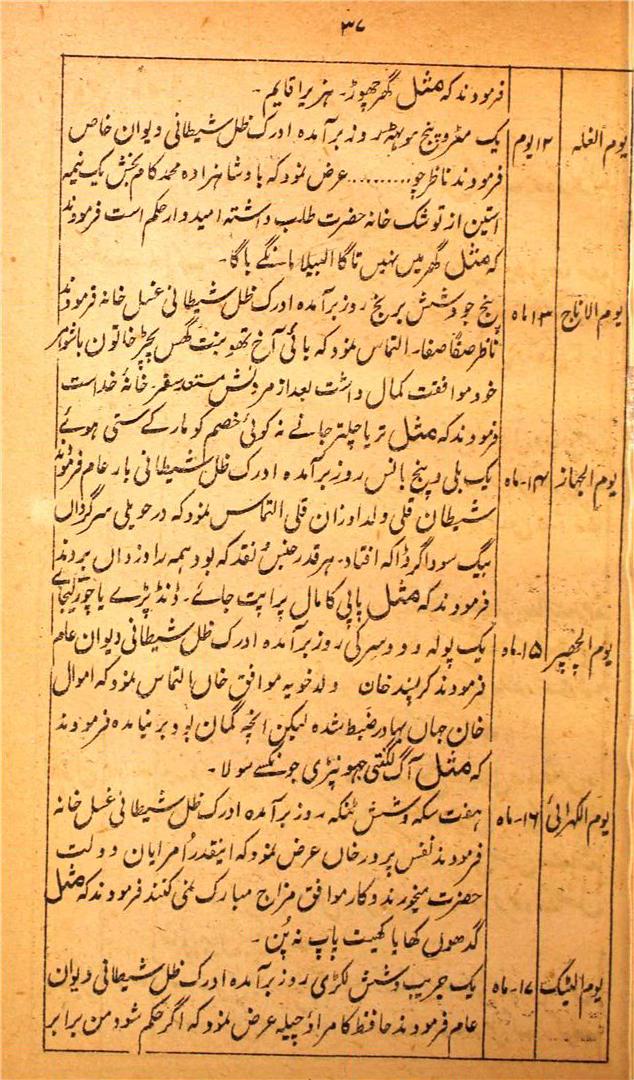 ۳۷
فرمودند کہ مثل گھر چھوڑ۔ ہزیرا قایم۔
یوم الغلہ ۱۲ یوم یک مٹر و پنج موہٹہر روز برآمدہ ادرک ظل شیطانی دیوان خاص
فرمودند ناظر جو.......... عرض نمود کہ بادشاہزادہ محمد کام بخش یک نیمہ
استین از توشک خانہ حضرت طلب داشتہ امیدوار حکم است فرمودند
کہ مثل گھر میں نہیں تاگا البیلا مانگے باگا۔
یوم الاناج ۱۳ ماہ پنج جو و شش برنج روز برآمدہ ادرک ظل شیطانی غسل خانہ فرمودند
ناظر صفا صفا۔ التماس نمود کہ بائی آخ تھو بنت گھس بچڑ خاتون باشوہر
خود موافقت کمال داشت بعد از مردنش مستعد سفر خانۂ خداست
فرمودند کہ مثل تریا چلتر جانے نہ کوئی خصم کو مار کے ستی ہوئے
یوم الجہاز ۱۴۔ ماہ یک بلی و پنج بانس روز برآمدہ ادرک ظل شیطانی بار عام فرمودند
شیطان قلی ولد اوزان قلی التماس نمود کہ در حویلی سرگرداں
بیگ سوداگر ڈاکہ افتاد۔ ہر قدر جنس و نقد کہ بود ہمہ را دزداں بردند
فرمودند کہ مثل پاپی کا مال پراپت جائے۔ ڈنڈ پڑے یا چور لیجائے
یوم الچھپر ۱۵۔ ماہ یک پولہ و دو سرکی روز برآمدہ ادرک ظل شیطانی دیوان عام
فرمودند گربند خان ولد خویہ موافق خاں التماس نمود کہ اموال
خان جہاں بہادر ضبط شدہ لیکن انچہ گمان بود برنیامدہ فرمودند
کہ مثل آگ لگنتی جھونپڑی جو نکسے سو لا۔
یوم الکہرائی ۱۶۔ ماہ ہفت سکہ و شش ٹنکہ روز برآمدہ ادرک ظل شیطانی غسل خانہ
فرمودند نفس پرور خاں عرض نمود کہ اینقدر اُمرایان دولت
حضرت میخورند و کار موافق مزاج مبارک نمی کنند فرمودند کہ مثل
گدھوں کھایا کھیت پاپ نہ پُن۔
یوم ۱۷۔ ماہ یک جریب و شش لکڑی روز برآمدہ ادرک ظل شیطانی دیوان
عام فرمودند حافظ کامراد چیلہ عرض نمود کہ اگر حکم شود من برابر